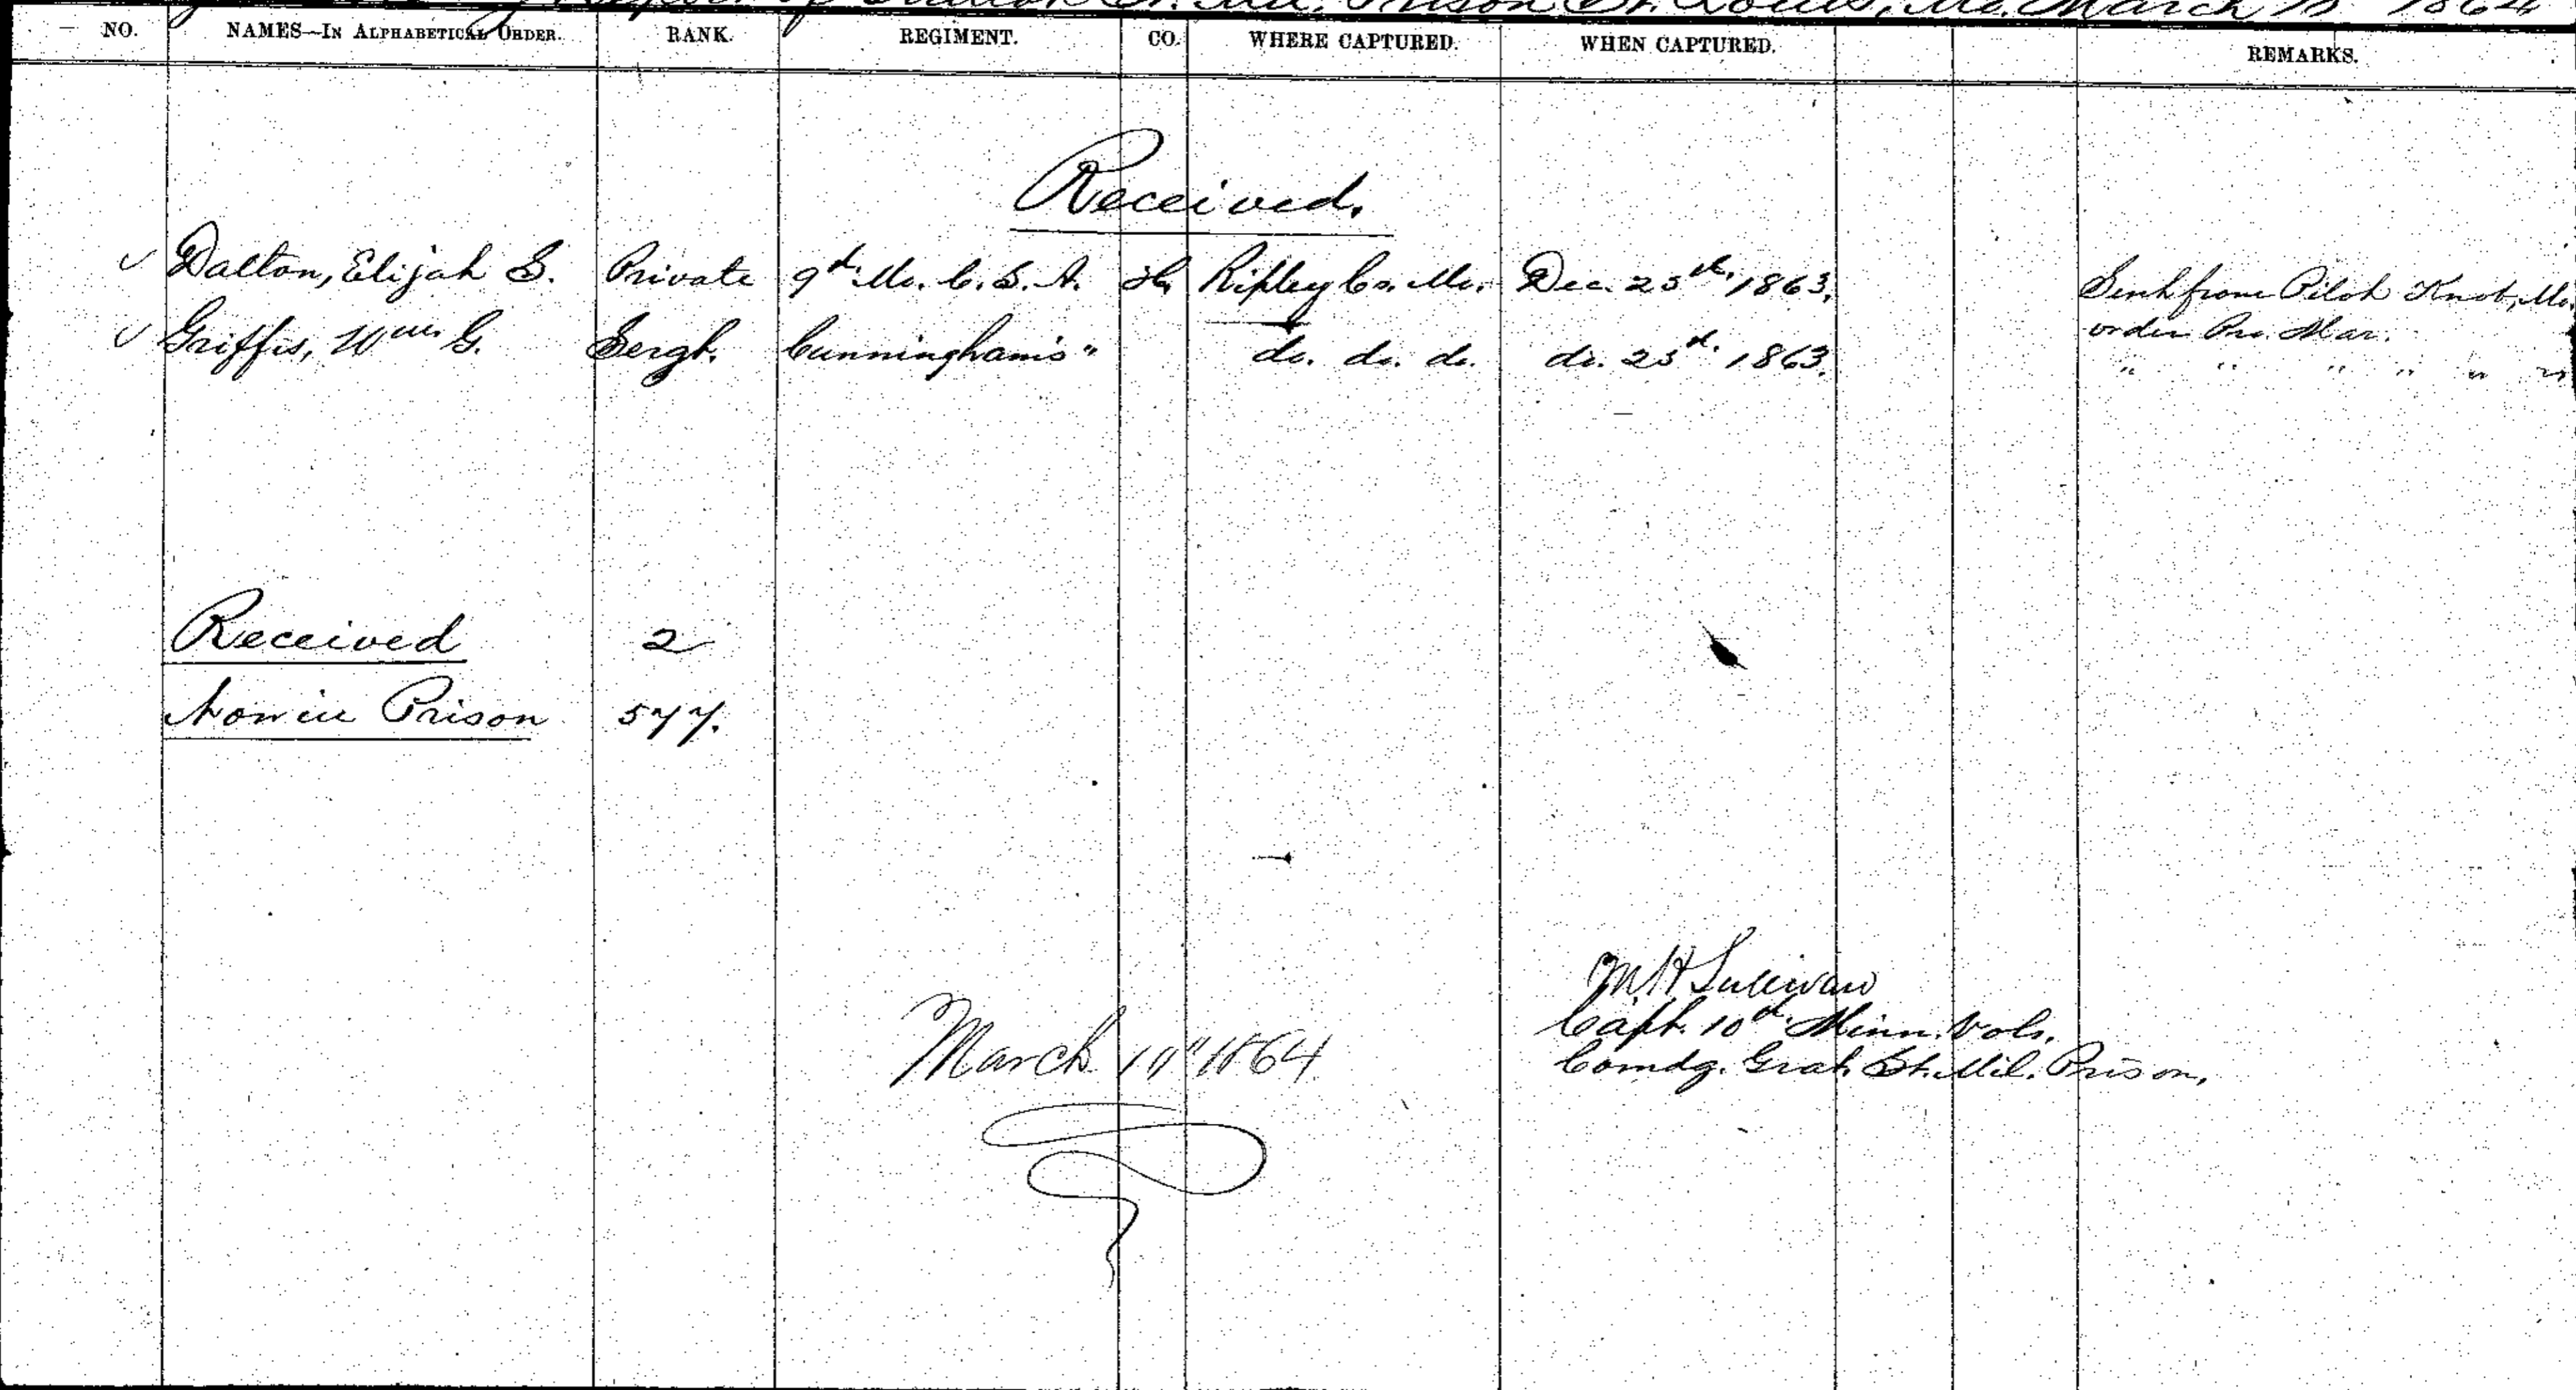 Report of Gratiot St. Mil. Prison St. Louis, Mo. March 1864
NO. NAMES—IN ALPHABETICAL ORDER. RANK. REGIMENT. CO. WHERE CAPTURED. WHEN CAPTURED. REMARKS.
Received.
✓ Dalton, Elijah S. Private 9th Mo. C. S. A. H. Ripley Co. Mo. Dec. 25th, 1863. Sent from Pilot Knob, Mo.
order Pro. Mar.
✓ Griffis, Wm G. Sergt. Cunningham's " do. do. do. do. 25th 1863. " " " " " "
Received 2
Now in Prison 577.
M H Sullivan
Capt. 10th Minn. Vols.
March 1864
Comdg. Grat. St. Mil. Prison.